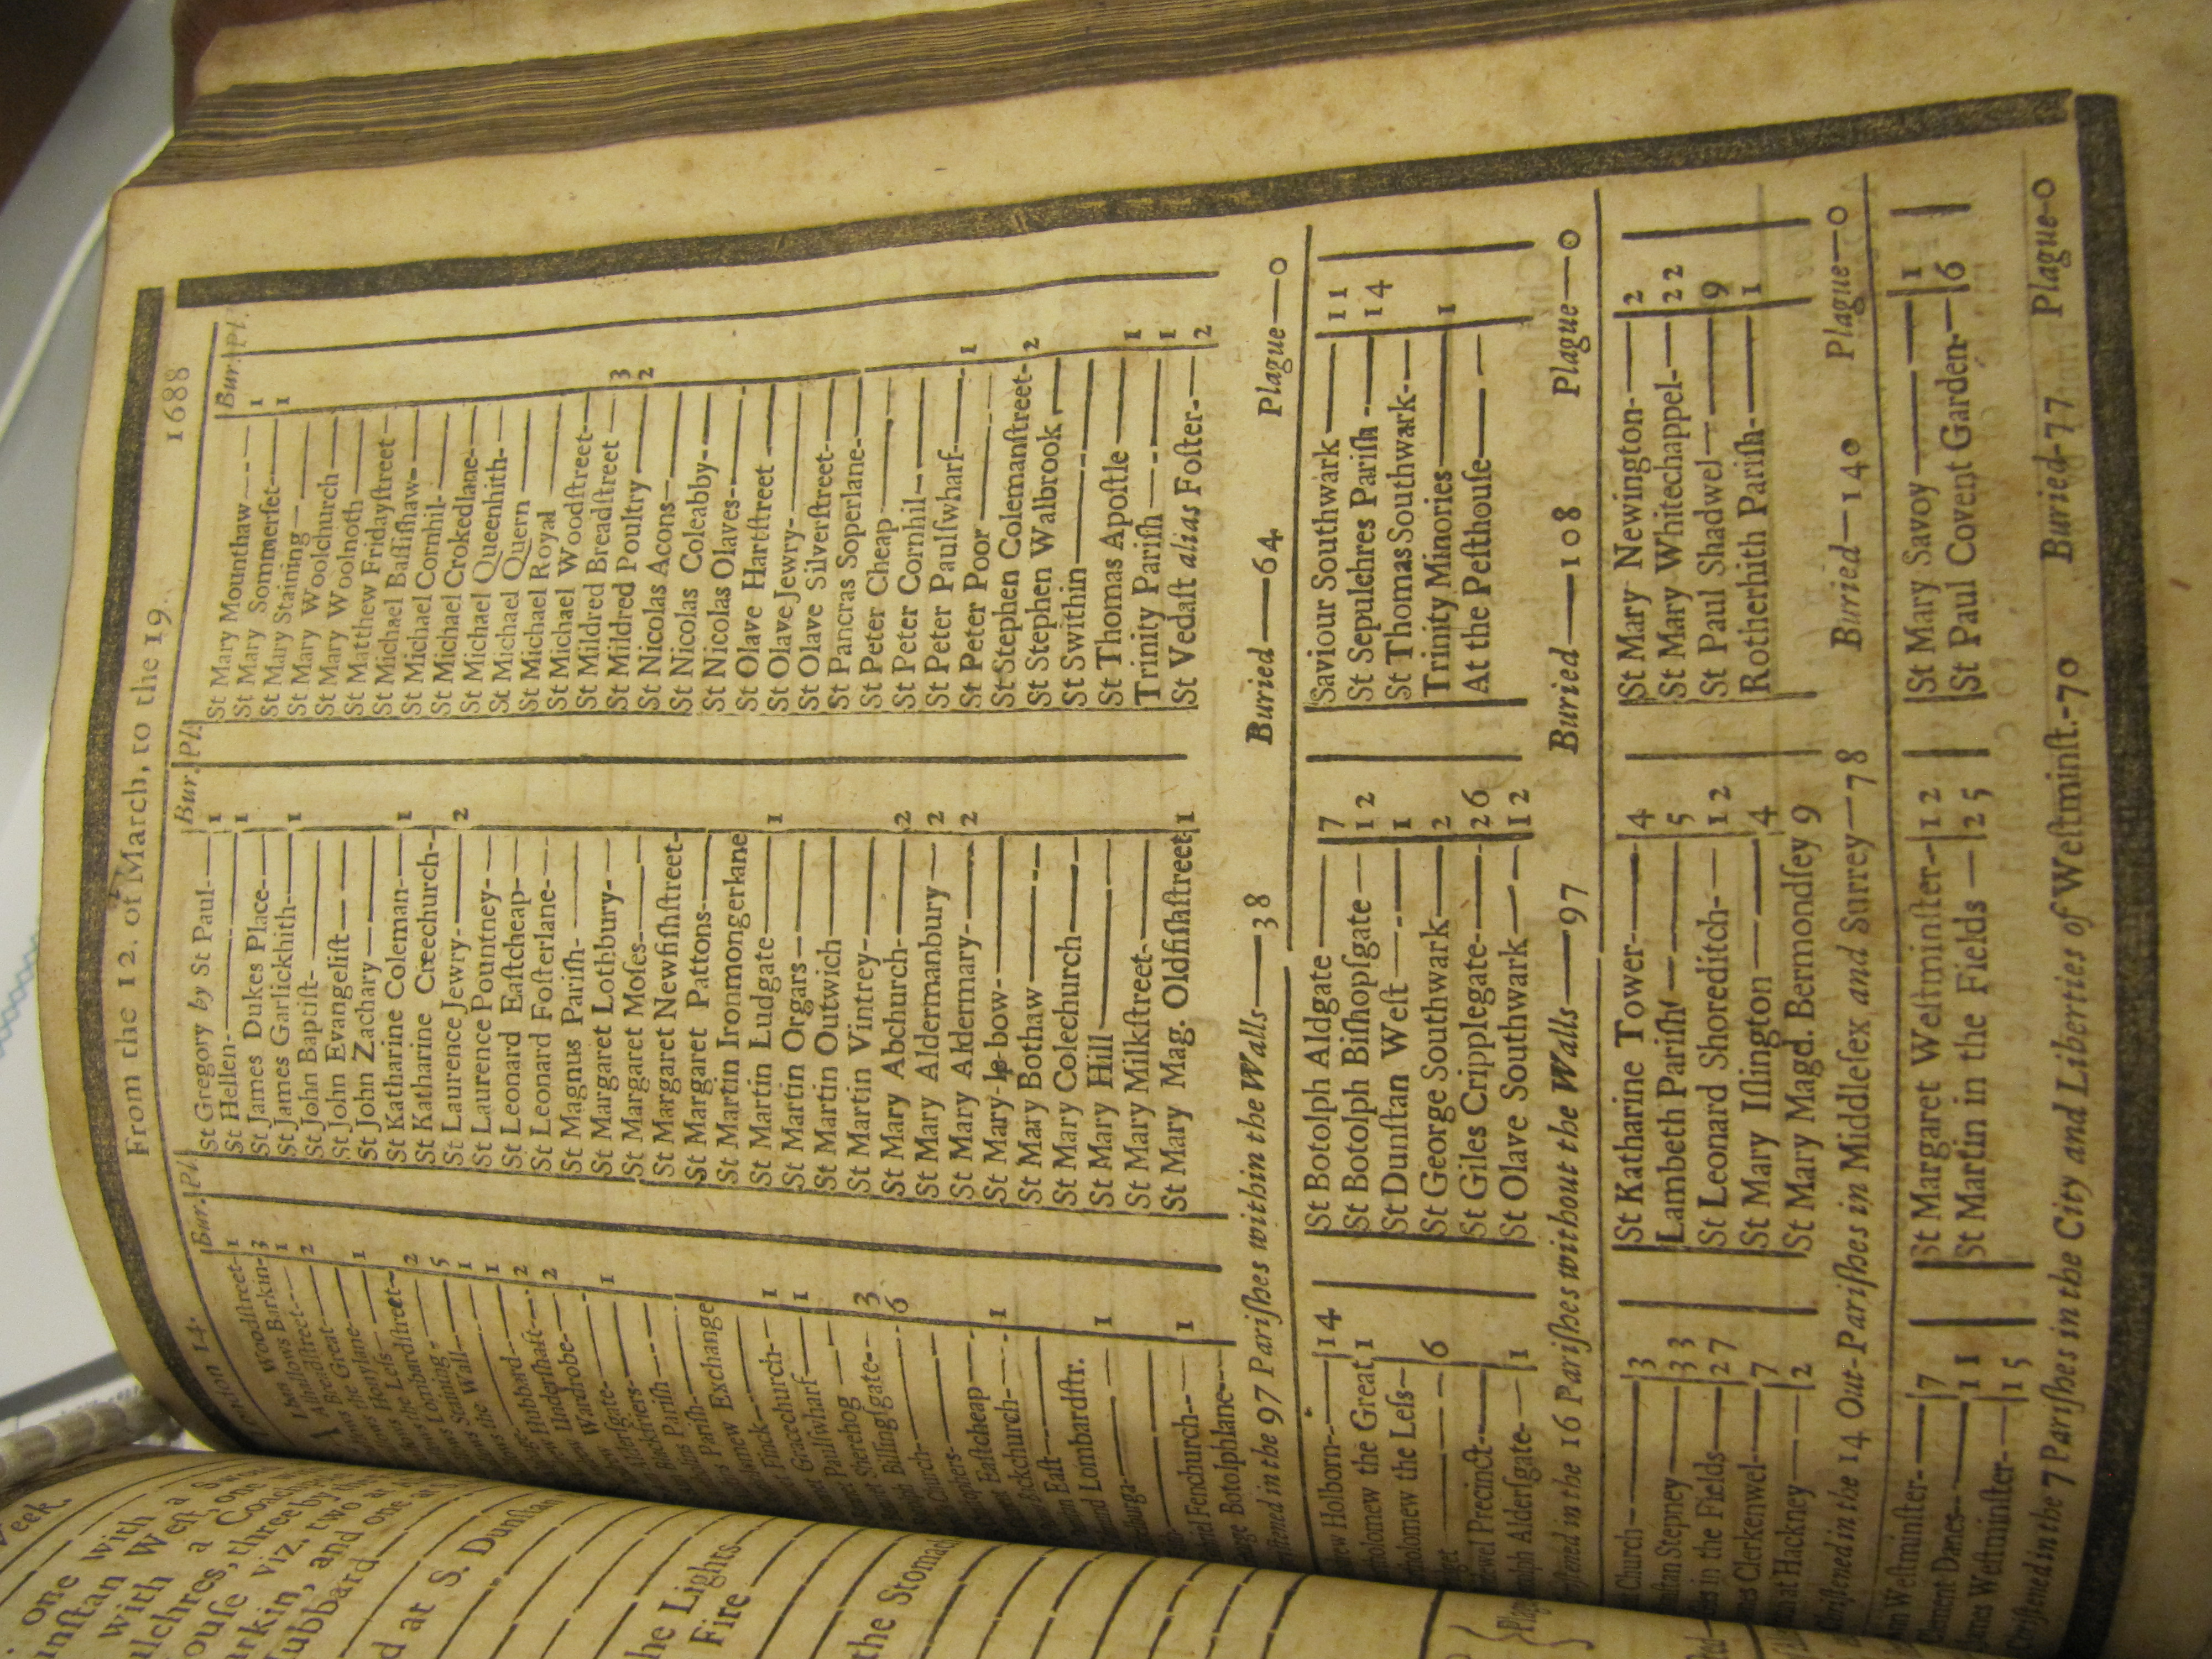 London 14. From the 12. of March, to the 19. 1688
Bur. Pl.
Woodſtreet- 1
Allhallows Barkin- 3
Breadſtreet 1
Great 2
Honylane
Leſs 1
Lombardſtreet
Staining 2
the Wall 5
1
Hubbard 1
Underſhaft 2
Wardrobe 2
Alderſgate
Blackfriers 1
Pariſh
Pariſh
Exchange
Finck
Gracechurch 1
Paulſwharf 1
Sherehog
Billingſgate 3
Church 6
Eaſtcheap
Backchurch 1
Eaſt
Lombardſtr.
1
Fenchurch
Botolphlane 1
Bur. Pl.
St Gregory by St Paul- 1
St Hellen- 1
St James Dukes Place
St James Garlickhith 1
St John Baptiſt
St John Evangeliſt
St John Zachary
St Katharine Coleman 1
St Katharine Creechurch
St Laurence Jewry 2
St Laurence Pountney
St Leonard Eaſtcheap
St Leonard Foſterlane
St Magnus Pariſh
St Margaret Lothbury
St Margaret Moſes
St Margaret Newfiſhſtreet
St Margaret Pattons
St Martin Ironmongerlane
St Martin Ludgate 1
St Martin Orgars
St Martin Outwich
St Martin Vintrey
St Mary Abchurch 2
St Mary Aldermanbury 2
St Mary Aldermary 2
St Mary le bow
St Mary Bothaw
St Mary Colechurch
St Mary Hill
St Mary Milkſtreet
St Mary Mag. Oldfiſhſtreet 1
Bur. Pl.
St Mary Mounthaw 1
St Mary Sommerſet 1
St Mary Staining
St Mary Woolchurch
St Mary Woolnoth
St Matthew Fridayſtreet
St Michael Baſſiſhaw
St Michael Cornhil
St Michael Crokedlane
St Michael Queenhith
St Michael Quern
St Michael Royal
St Michael Woodſtreet
St Mildred Breadſtreet
St Mildred Poultry 3
St Nicolas Acons 2
St Nicolas Coleabby
St Nicolas Olaves
St Olave Hartſtreet
St Olave Jewry
St Olave Silverſtreet
St Pancras Soperlane
St Peter Cheap
St Peter Cornhil
St Peter Paulſwharf
St Peter Poor 1
St Stephen Colemanſtreet
St Stephen Walbrook 2
St Swithin
St Thomas Apoſtle
Trinity Pariſh 1
St Vedaſt alias Foſter 1
2
Chriſtened in the 97 Pariſhes within the Walls—38 Buried—64 Plague—0
Holborn 14
Bartholomew the Great 1
Bartholomew the Leſs
6
Bridewel Precinct
Botolph Alderſgate 1
St Botolph Aldgate 7
St Botolph Biſhopſgate 12
St Dunſtan Weſt 1
St George Southwark 2
St Giles Cripplegate 26
St Olave Southwark 12
Saviour Southwark 11
St Sepulchres Pariſh 14
St Thomas Southwark
Trinity Minories 1
At the Peſthouſe
Chriſtened in the 16 Pariſhes without the Walls—97 Buried—108 Plague—0
Church 3
Stepney 33
in the Fields 27
Clerkenwel 7
at Hackney 2
St Katharine Tower 4
Lambeth Pariſh 5
St Leonard Shoreditch 12
St Mary Iſlington 4
St Mary Magd. Bermondſey 9
St Mary Newington 2
St Mary Whitechappel 22
St Paul Shadwel 9
Rotherhith Pariſh 1
Chriſtened in the 14 Out-Pariſhes in Middleſex and Surrey—78 Buried—140 Plague—0
Weſtminſter 7
Clement Danes 11
James Weſtminſter 15
St Margaret Weſtminſter 12
St Martin in the Fields 25
St Mary Savoy 1
St Paul Covent Garden 6
Chriſtened in the 7 Pariſhes in the City and Liberties of Weſtminſt.-70 Buried-77 Plague-0
eek.
one with a
unſtan Weſt, one
with a Coach
ulchres, three by
ouſe viz. two
arkin, and one at
ubbard
d at S. Dunſtan
he Lights
Fire
the Stomach